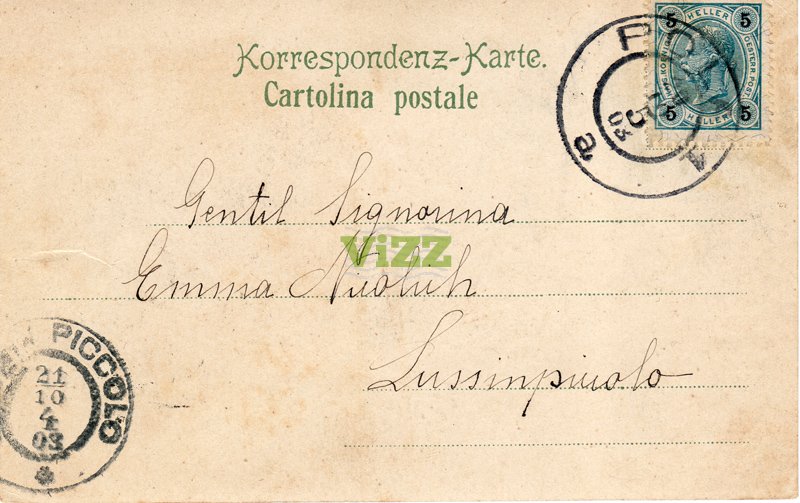 Korrespondenz-Karte.
Cartolina postale
5 HELLER 5
OESTERR. POST
5 HELLER 5
POLA
a
Gentil Signorina
ViZZ
Emma
Lussinpiccolo
PICCOLO
21
10
4
03
a